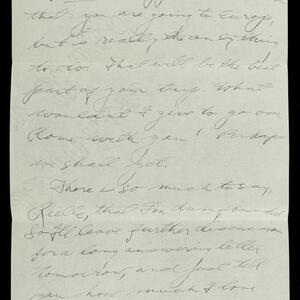 that you are going to Europe,
but it's really the only thing
to do. That will be the best
part of your trip. What
wouldn't I give to go on
Rome with you! Perhaps
we shall yet.
There is so much to say,
that I'm
so I'll leave further discussion
for a long answering letter
tomorrow, and just tell
you how much I love